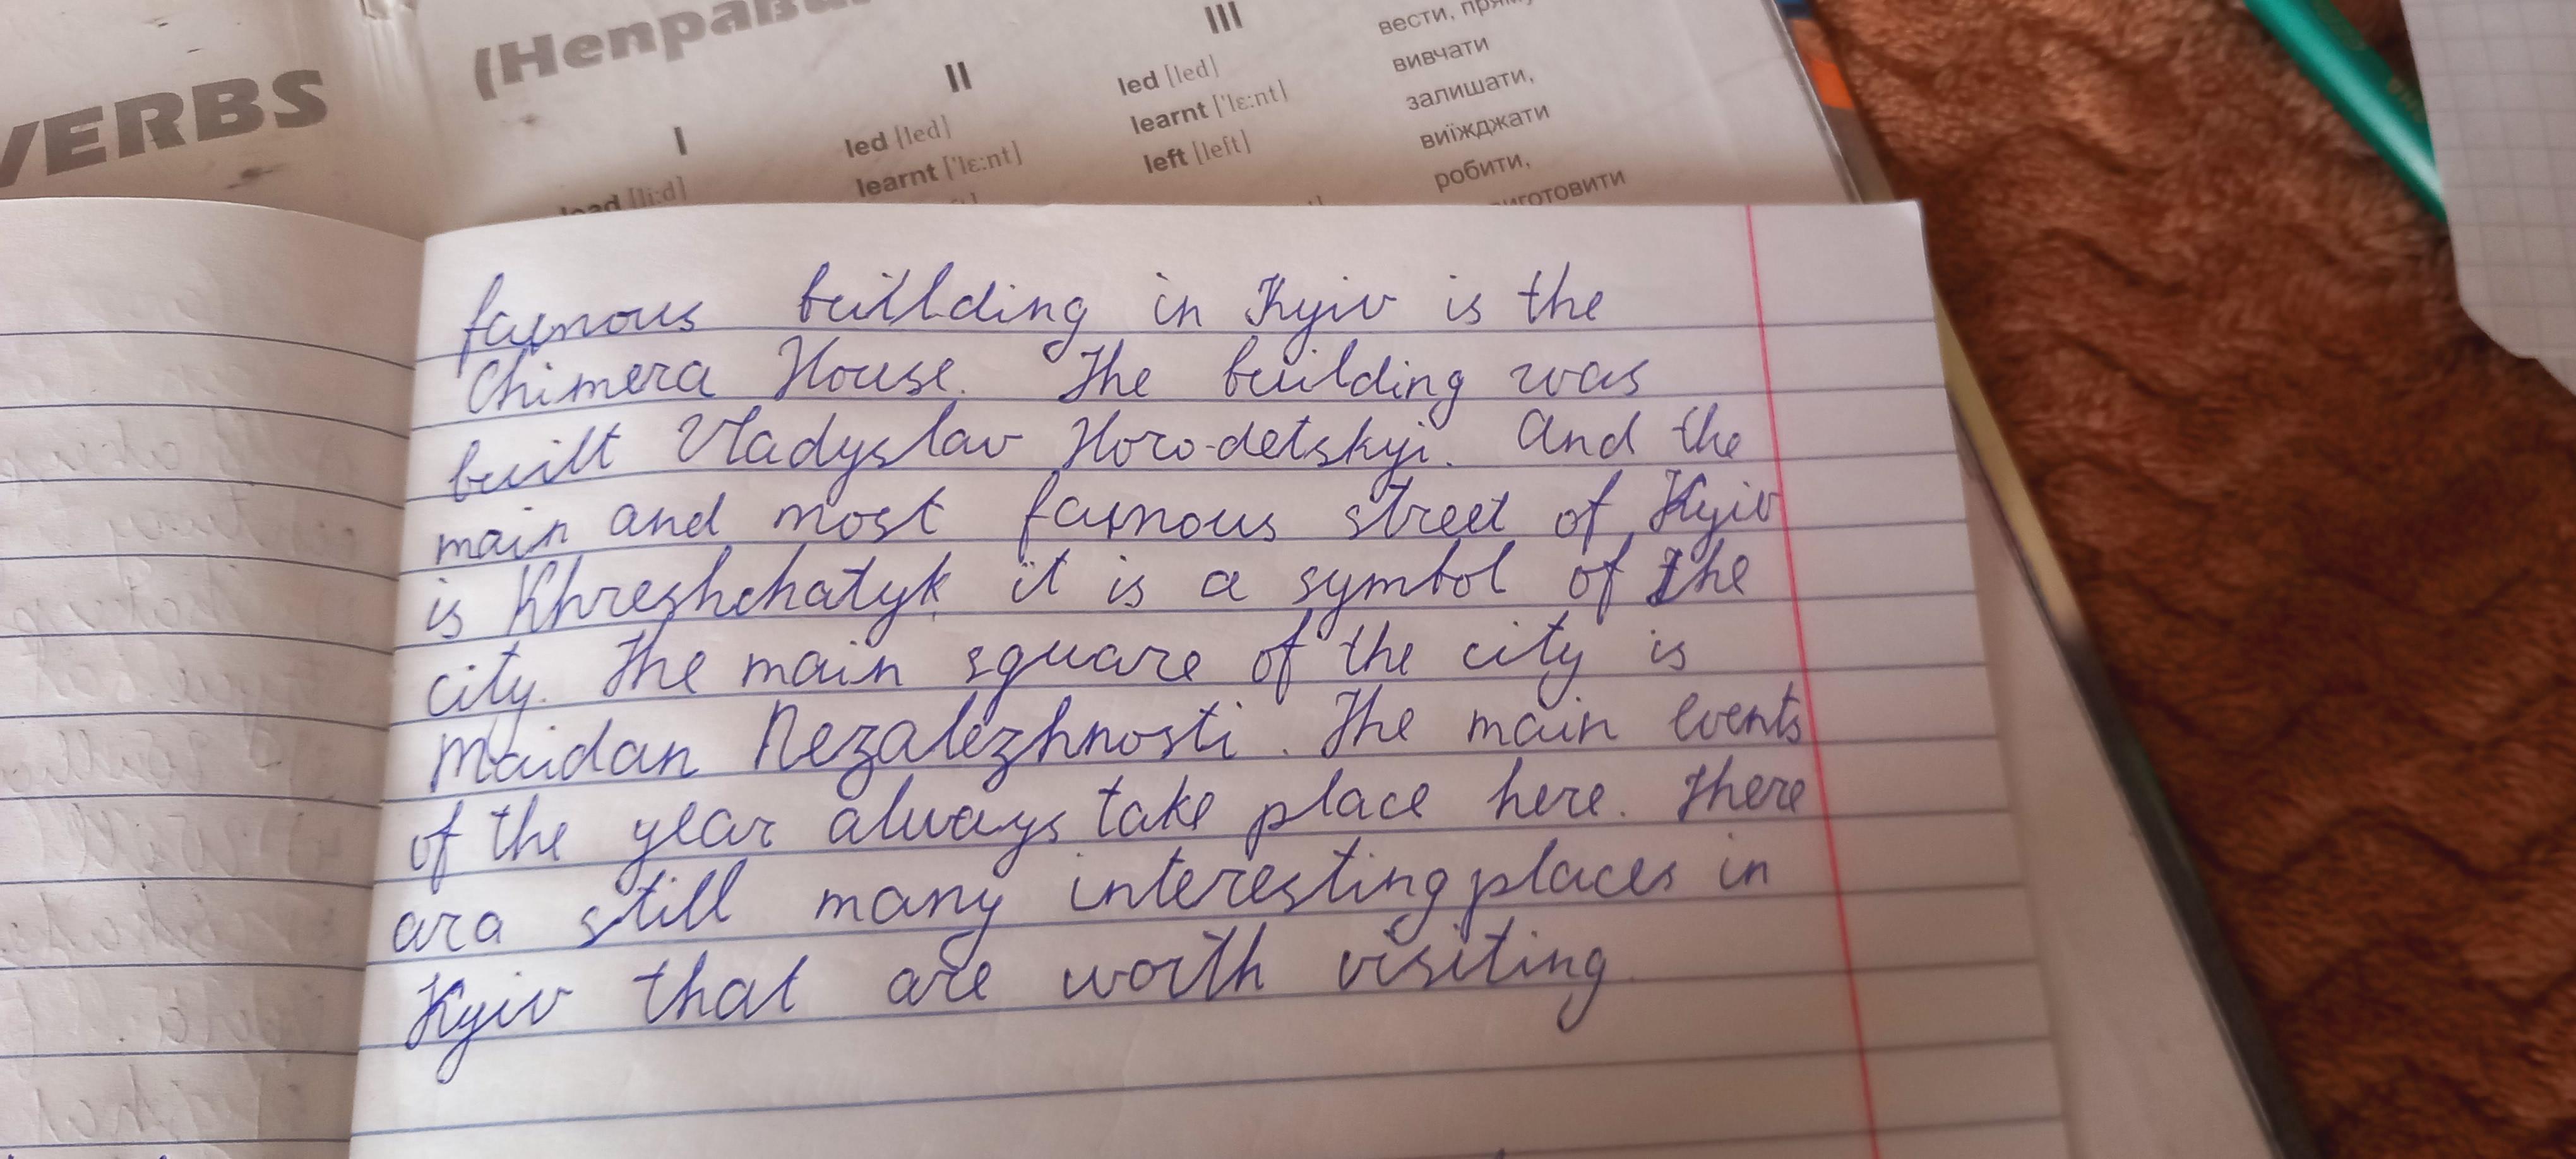 VERBS
I II III
led [led] led [led]
learnt ['lɛ:nt] learnt ['lɛ:nt] вивчати
left [left] залишати,
виїжджати
робити,
famous buillding in Kyiv is the
Chimera House. The building was
built Vladyslav Horo-detskyi. And the
main and most famous street of Kyiv
is Khreshchatyk it is a symbol of the
city. The main square of the city is
Maidan Nezalezhnosti. The main events
of the year always take place here. There
ara still many interesting places in
Kyiv that are worth visiting